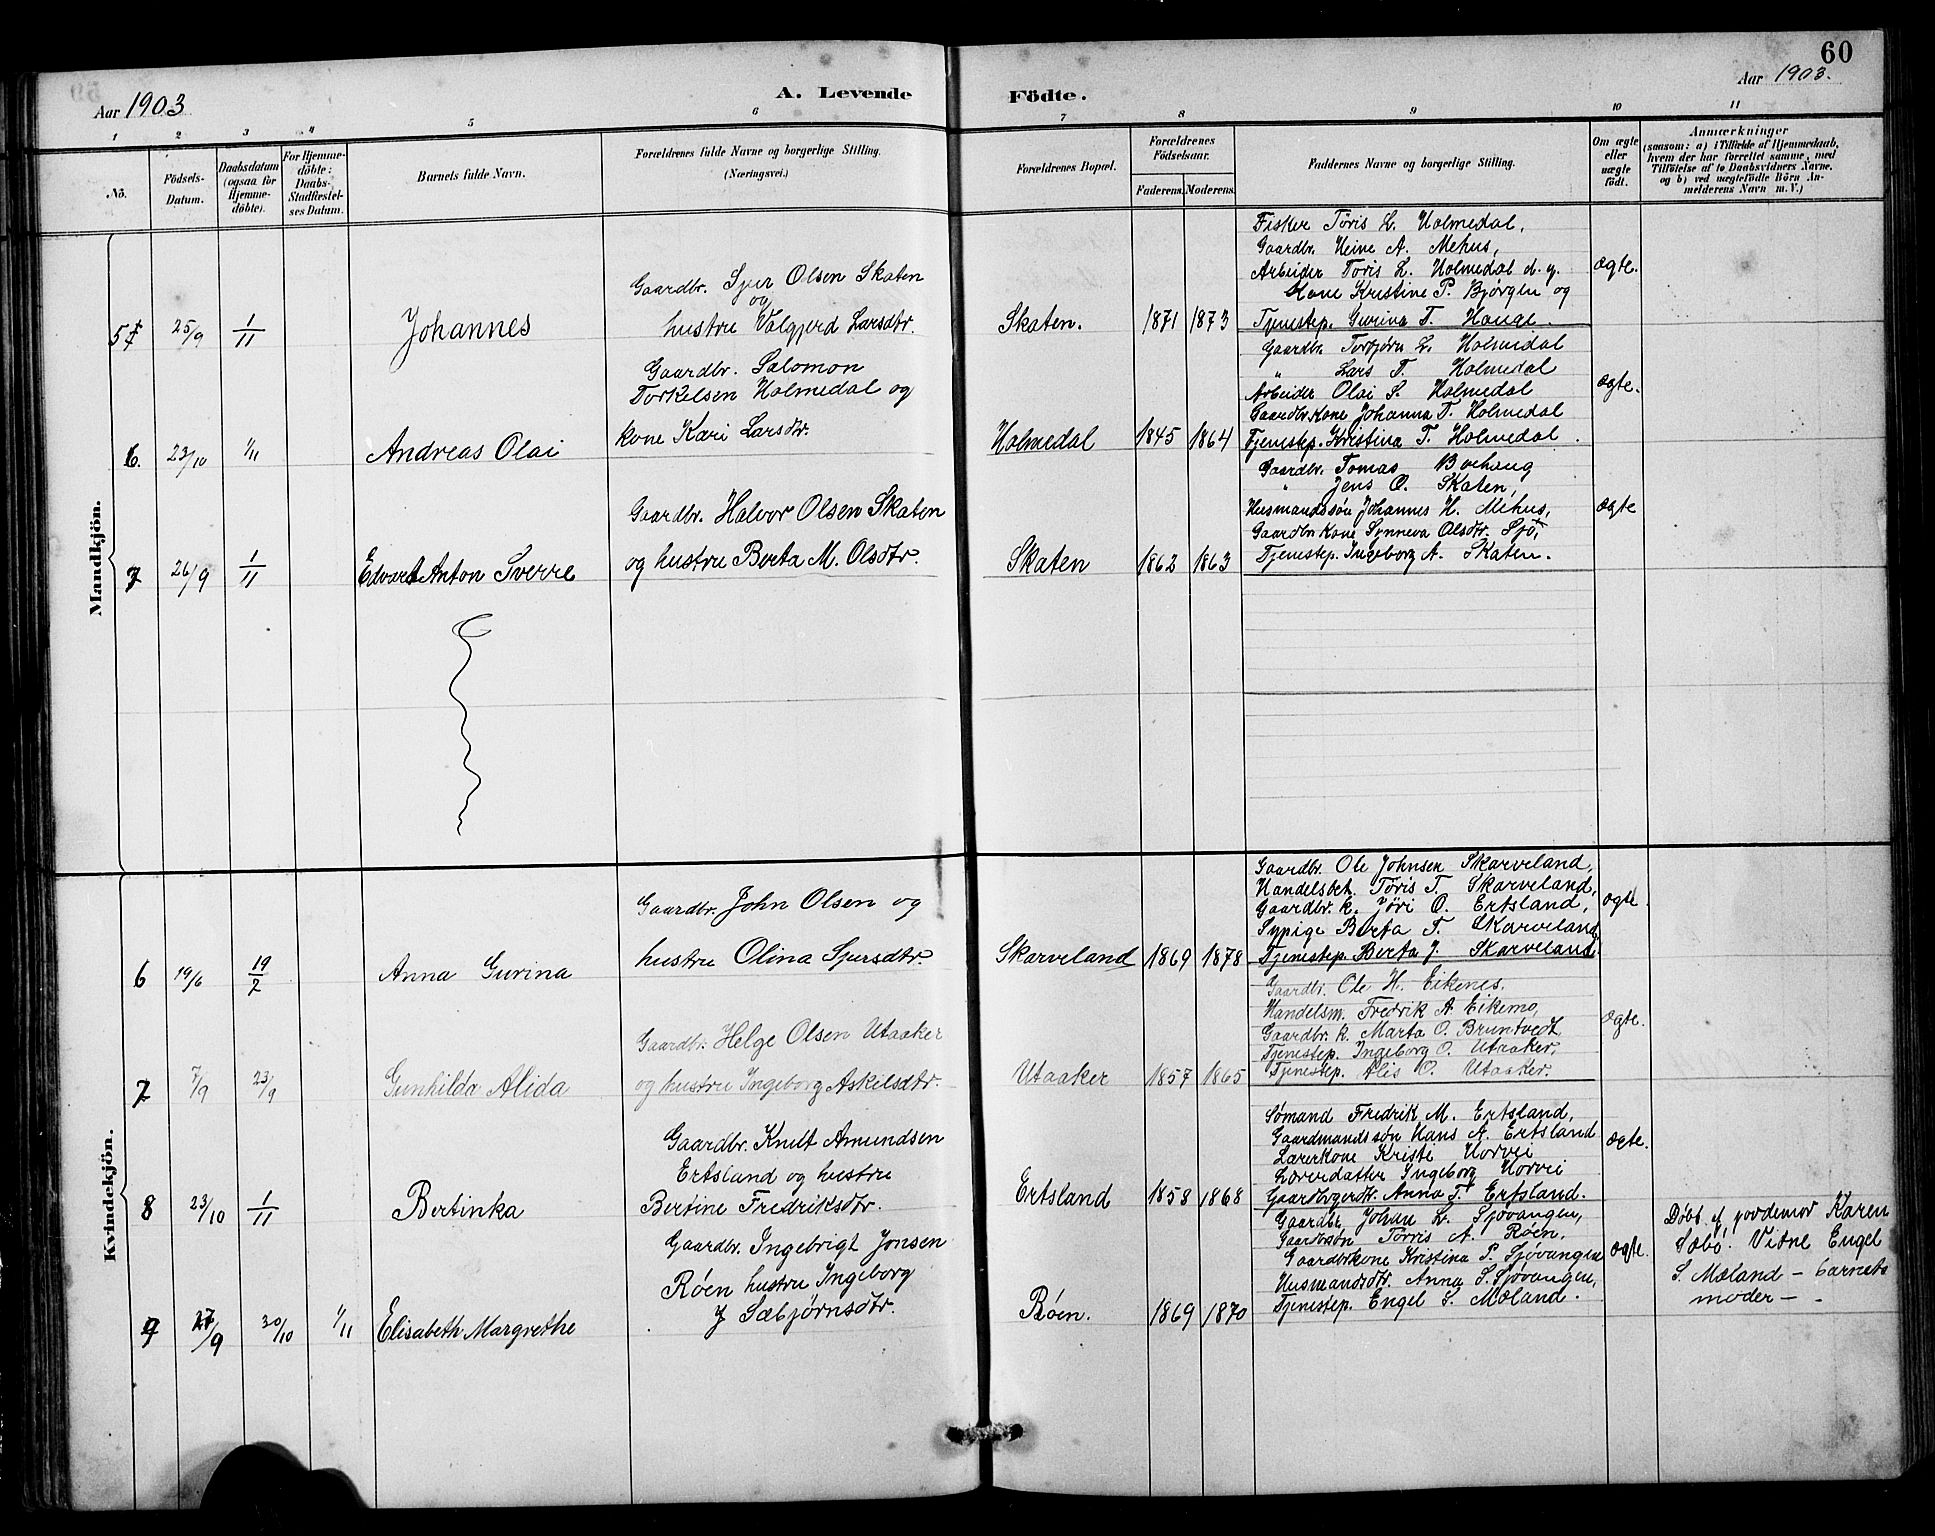 60
Aar 1903
A. Levende Födte.
Aar 1903.
1 2 3 4 5 6 7 8 9 10 11
No.
Födsels-Datum.
Daabsdatum (ogsaa for Hjemme-döbte).
For Hjemme-döbte: Daabs-Stadfæstel-ses Datum.
Barnets fulde Navn.
Forældrenes fulde Navne og borgerlige Stilling.
(Næringsvei.)
Forældrenes Bopæl.
Forældrenes Födselsaar.
Faderens. Moderens.
Faddernes Navne og borgerlige Stilling.
Om ægte eller uægte födt.
Anmærkninger
(saasom: a) i Tilfælde af Hjemmedaab,
hvem der har forrettet samme, med
Tilföielse af to Daabsvidners Navne,
og b) ved uægtefödte Börn An-
melderens Navn m. V.)
Mandkjön.
5 25/9 1/11 Johannes
Gaardbr. Sjur Olsen Skaten
og
hustru Valgjerd Larsdtr.
Skaten. 1871 1873
Fisker Töris L. Holmedal,
Gaardbr. Heine A. Mehus,
Arbeider Toris L. Holmedal d. y.
Kone Kristine P. Bjørgen og
Tjenestep. Gurina T. Hauge.
ægte.
6. 23/10 1/11 Andreas Olai
Gaardbr. Salomon
Torkelsen Holmedal og
kone Kari Larsdtr.
Holmedal 1845 1864
Gaardbr. Torbjørn L. Holmedal
" Lars T. Holmedal
Arbeider Olai S. Holmedal
Gaardbr.kone Johanna T. Holmedal
Tjenestep. Kristina T. Holmedal.
ægte.
7 26/9 1/11 Edvart Anton Sverre
Gaardbr. Halvor Olsen Skaten
og hustru Berta M. Olsdtr.
Skaten 1862 1863
Gaardbr. Tomas Bøehaug
" Jens O. Skaten,
Husmandssøn Johannes H. Mehus,
Gaardbr.kone Synneva Olsdtr. Sjo,
Tjenestep. Ingeborg A. Skaten.
ægte
Kvindekjön.
6 19/6 19/7 Anna Gurina
Gaardbr. John Olsen og
hustru Olina Sjursdtr.
Skarveland 1869 1878
Gaardbr. Ole Johnsen Skarveland,
Handelsbet. Töris T. Skarveland,
Gaardbr. k. Jöri O. Ertsland,
Sypige Berta T. Skarveland
Tjenestep. Berta J. Skarveland.
ægte.
7 7/9 23/9 Gunhilda Alida
Gaardbr. Helge Olsen Utaaker
og hustru Ingeborg Askelsdtr.
Utaaker 1857 1865
Gaardbr. Ole H. Eikenes.
Handelsm. Fredrik A. Eikemo,
Gaardbr. k. Marta O. Bruntvedt
Tjenestep. Ingeborg O. Utaaker,
Tjenestep. Alis O. Utaaker.
ægte.
8 23/10 1/11 Bertinka
Gaardbr. Knut Amundsen
Ertsland og hustru
Bertine Fredriksdtr.
Ertsland 1858 1868
Sømand Fredrik M. Ertsland,
Gaardmandssøn Hans A. Ertsland
Lærerkone Kristi Horvei
Lærerdatter Ingeborg Horvei
Anna T. Ertsland.
ægte.
9 27/9 30/10 1/11 Elisabeth Margrethe
Gaardbr. Ingebrigt Jonsen
Röen hustru Ingeborg
J Sæbjörnsdtr.
Röen. 1869 1870
Gaardbr. Johan L. Sjövangen,
Gaardbrsøn Torris A. Röen,
Gaardbrkone Kristina P. Sjövangen
Husmandsdtr. Anna S. Sjövangen,
Tjenestep. Engel S. Mæland.
ægte.
Döbt af jordemor Karen
Sæbö. Vitne Engel
S. Mæland – barnets
moder –